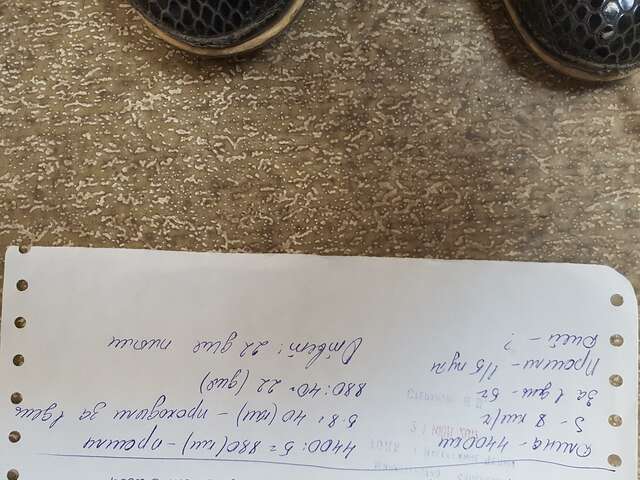 Длина - 4400 км
S - 8 км/ч
За 1 день - 5ч
Прошли - 1/5 пути
Дней - ?
4400 : 5 = 880 (км) - прошли
5 · 8 = 40 (км) - проходили за 1 день
880 : 40 = 22 (дня)
Ответ: 22 дня плыли